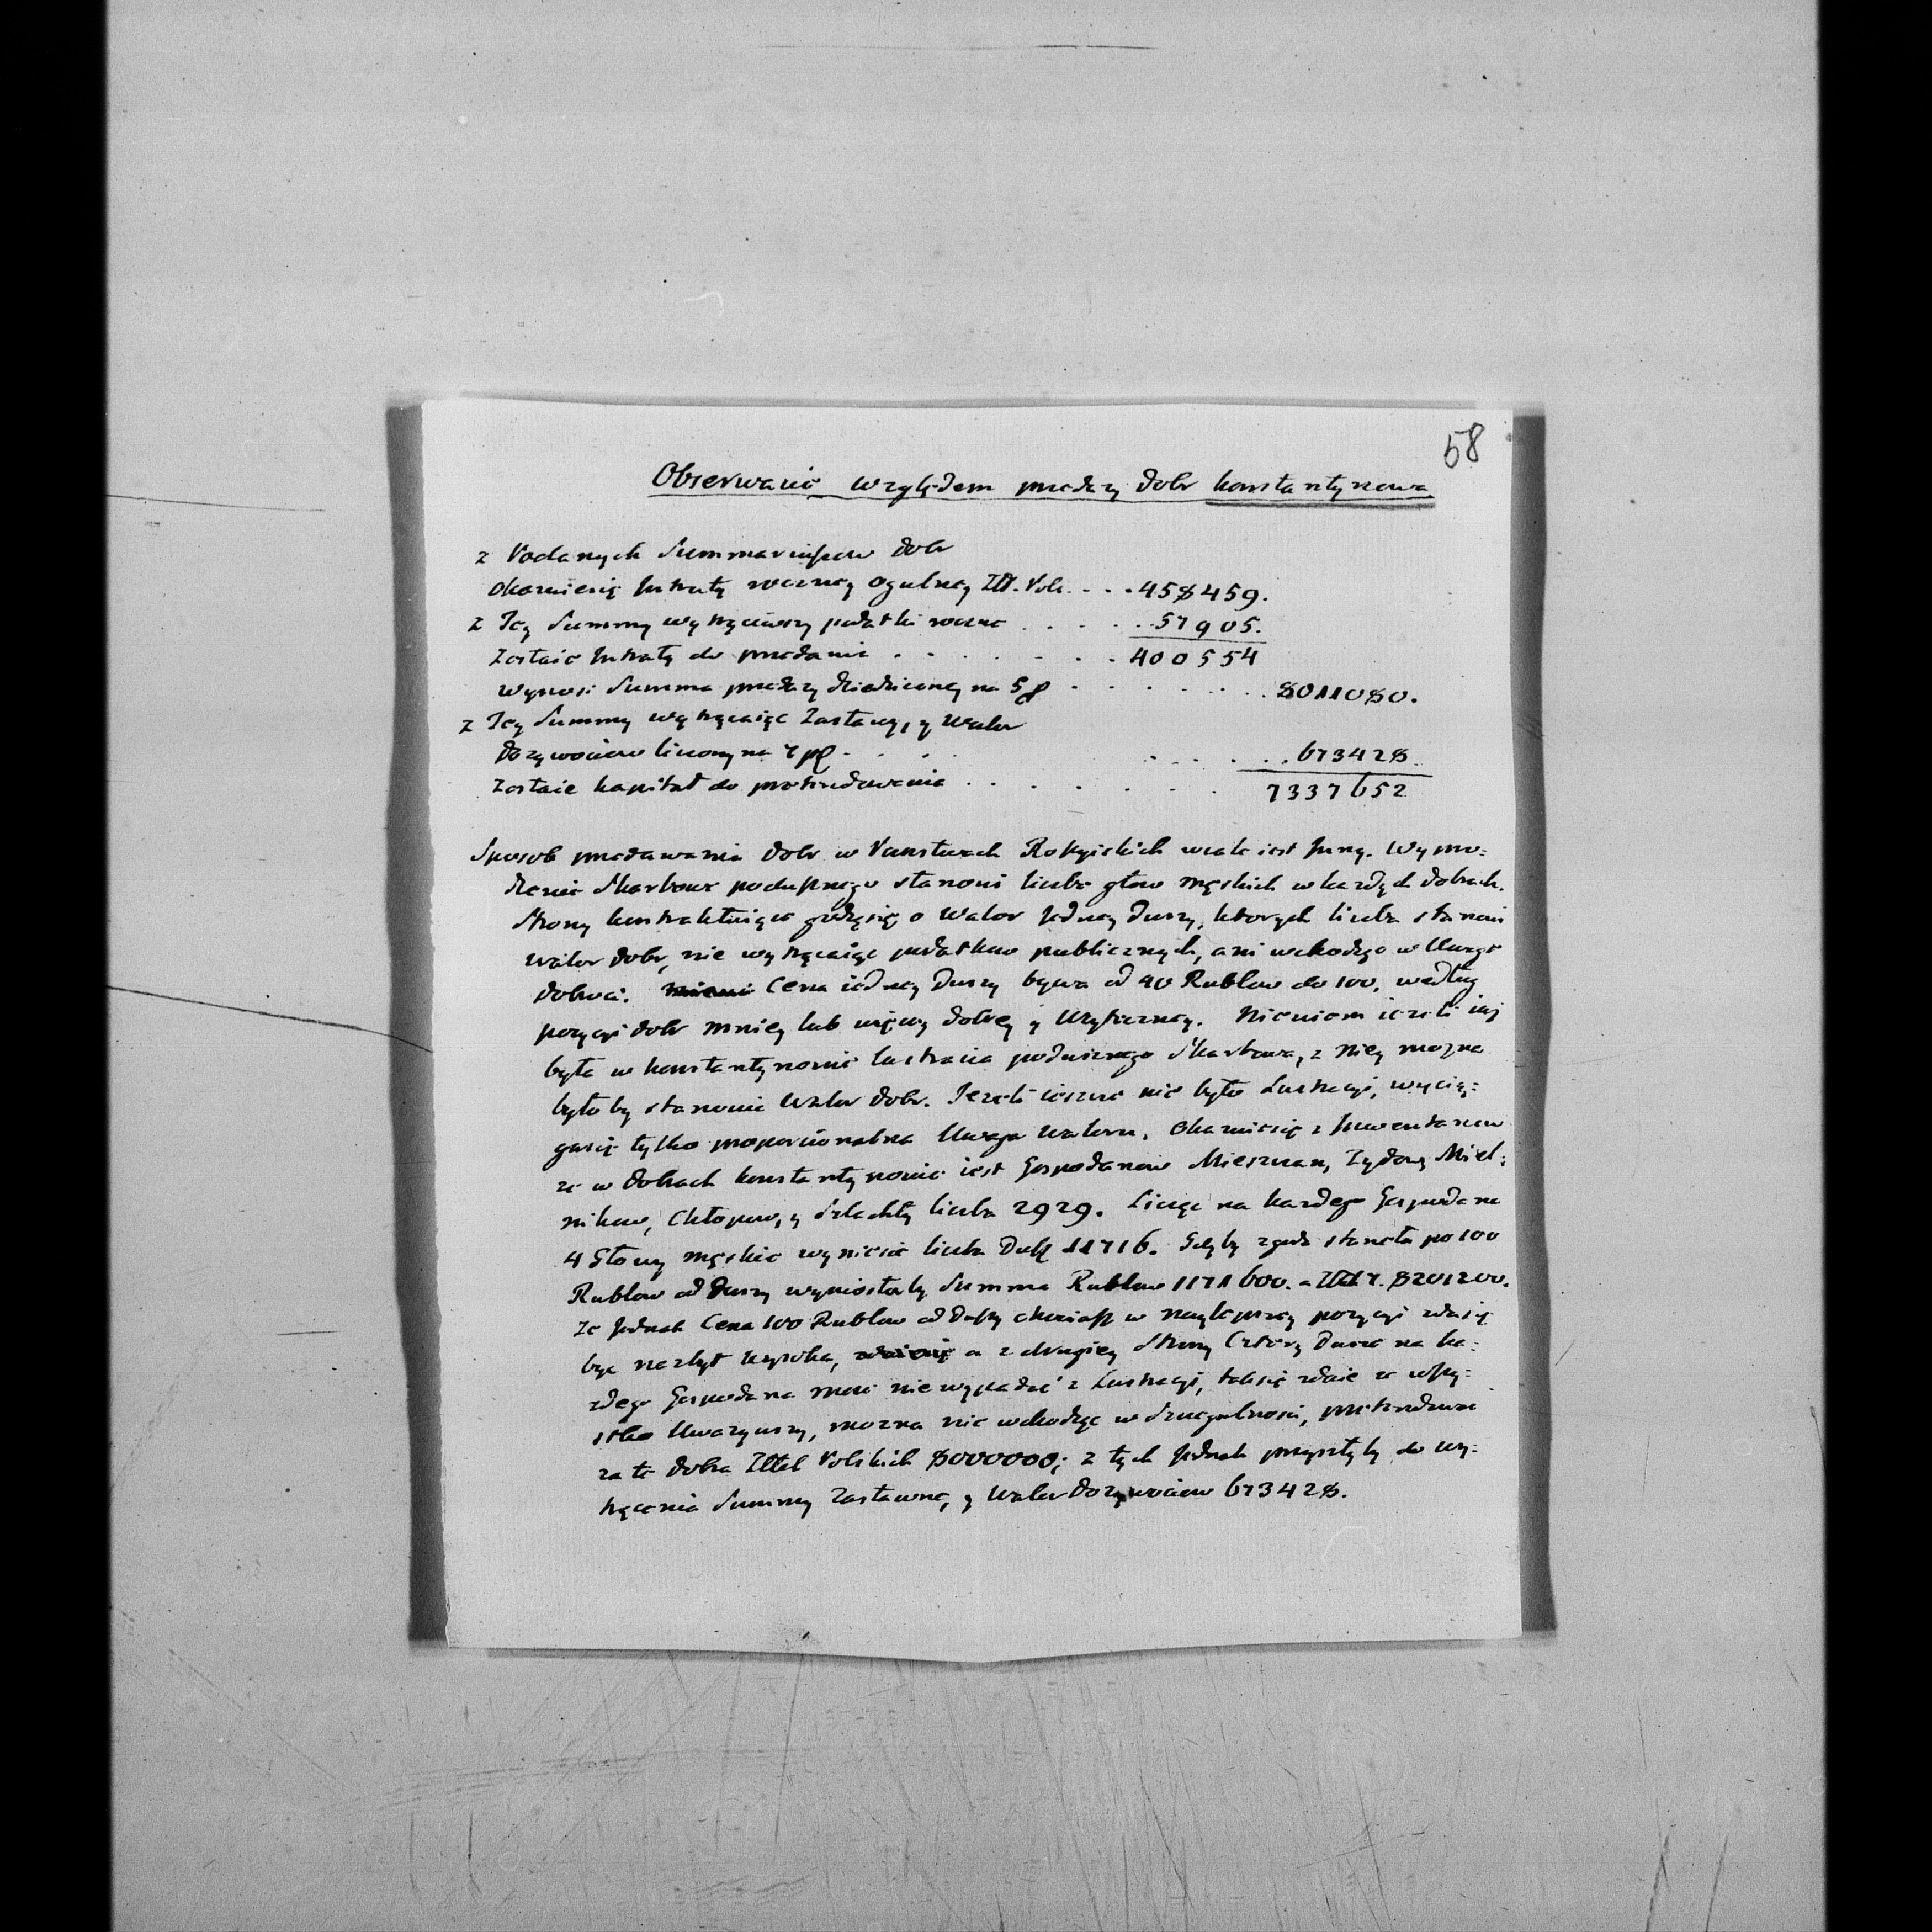 58
Obserwacie względem przedaży Dobr Konstantynowa
z Podanych Summariuszow Dobr
okazuiesię Intraty roczney ogulney Złł. Pols. . . . 458459.
z Tey Summy wytrąciwszy podatki roczne . . . . . . 57905.
Zostaie Intraty do przedania . . . . . . . 400554
wynosi Summa przedaży dziedziczney na 5 p . . . . . . . . 8011080.
z Tey Summy wytrącaiąc Zastawy, y Walor
Dozywociow liczony na 7 p . . . . . . . . . 673428.
Zostaie kapitał do pretendowania . . . . . . . 7337652
Sposob przedawania Dobr w Panstwach Rossyiskich wcale iest Inny. Wypro=
dzenie Skarbowe podusznego stanowi liczba głow męskich w każdych dobrach.
Strony kontraktuiące godzą się o Walor Jedney Duszy, ktorych liczba stanowi
walor Dobr, nie wytrącaiąc podatkow publicznych, ani wchodząc w Uwagę
dobroci. Cena iedney Duszy bywa od 90 Rublow do 100, według
pozycyi dobr mniey lub więcey dobrey y Użyteczney. Nie wiem ieżeli iuż
była w Konstantynowie lustracia podusznego Skarbowa, z niey można
byłoby stanowić Walor Dobr. Jeżeli ieszcze nie było Lustracyi, wycią=
gnie tylko proporcionalna Uwaga Waloru, okazuie się z Inwentarzow
że w Dobrach Konstantynowie iest Gospodarzow Mieszczan, Żydow, Miel=
nikow, Chłopow, y Szlachty liczba 2929. Licząc na każdego Gospodarza
4 Głowy męskie wyniesie liczba Dusz 11716. Gdyby zgoda stanęła po 100
Rublow od Duszy wyniosłaby Summa Rublow 1171600. a Złł. 8201200.
Ze Jednak Cena 100 Rublow od Duszy chociasz w naylepszey pozycyi zdaie się
być nazbyt wysoka, a z drugiey Strony Cztery Dusze na ka=
żdego Gospodarza może nie wypadać z Lustracyi, tak się zdaie ze wszy=
stko Uważywszy, można nie wchodząc w szczegulności, pretendować
za te Dobra Złłch Polskich 8000000; z tych Jednak przyszłyby do wy=
trącenia Summy Zastawne, y Walor Dozywociow 673428.